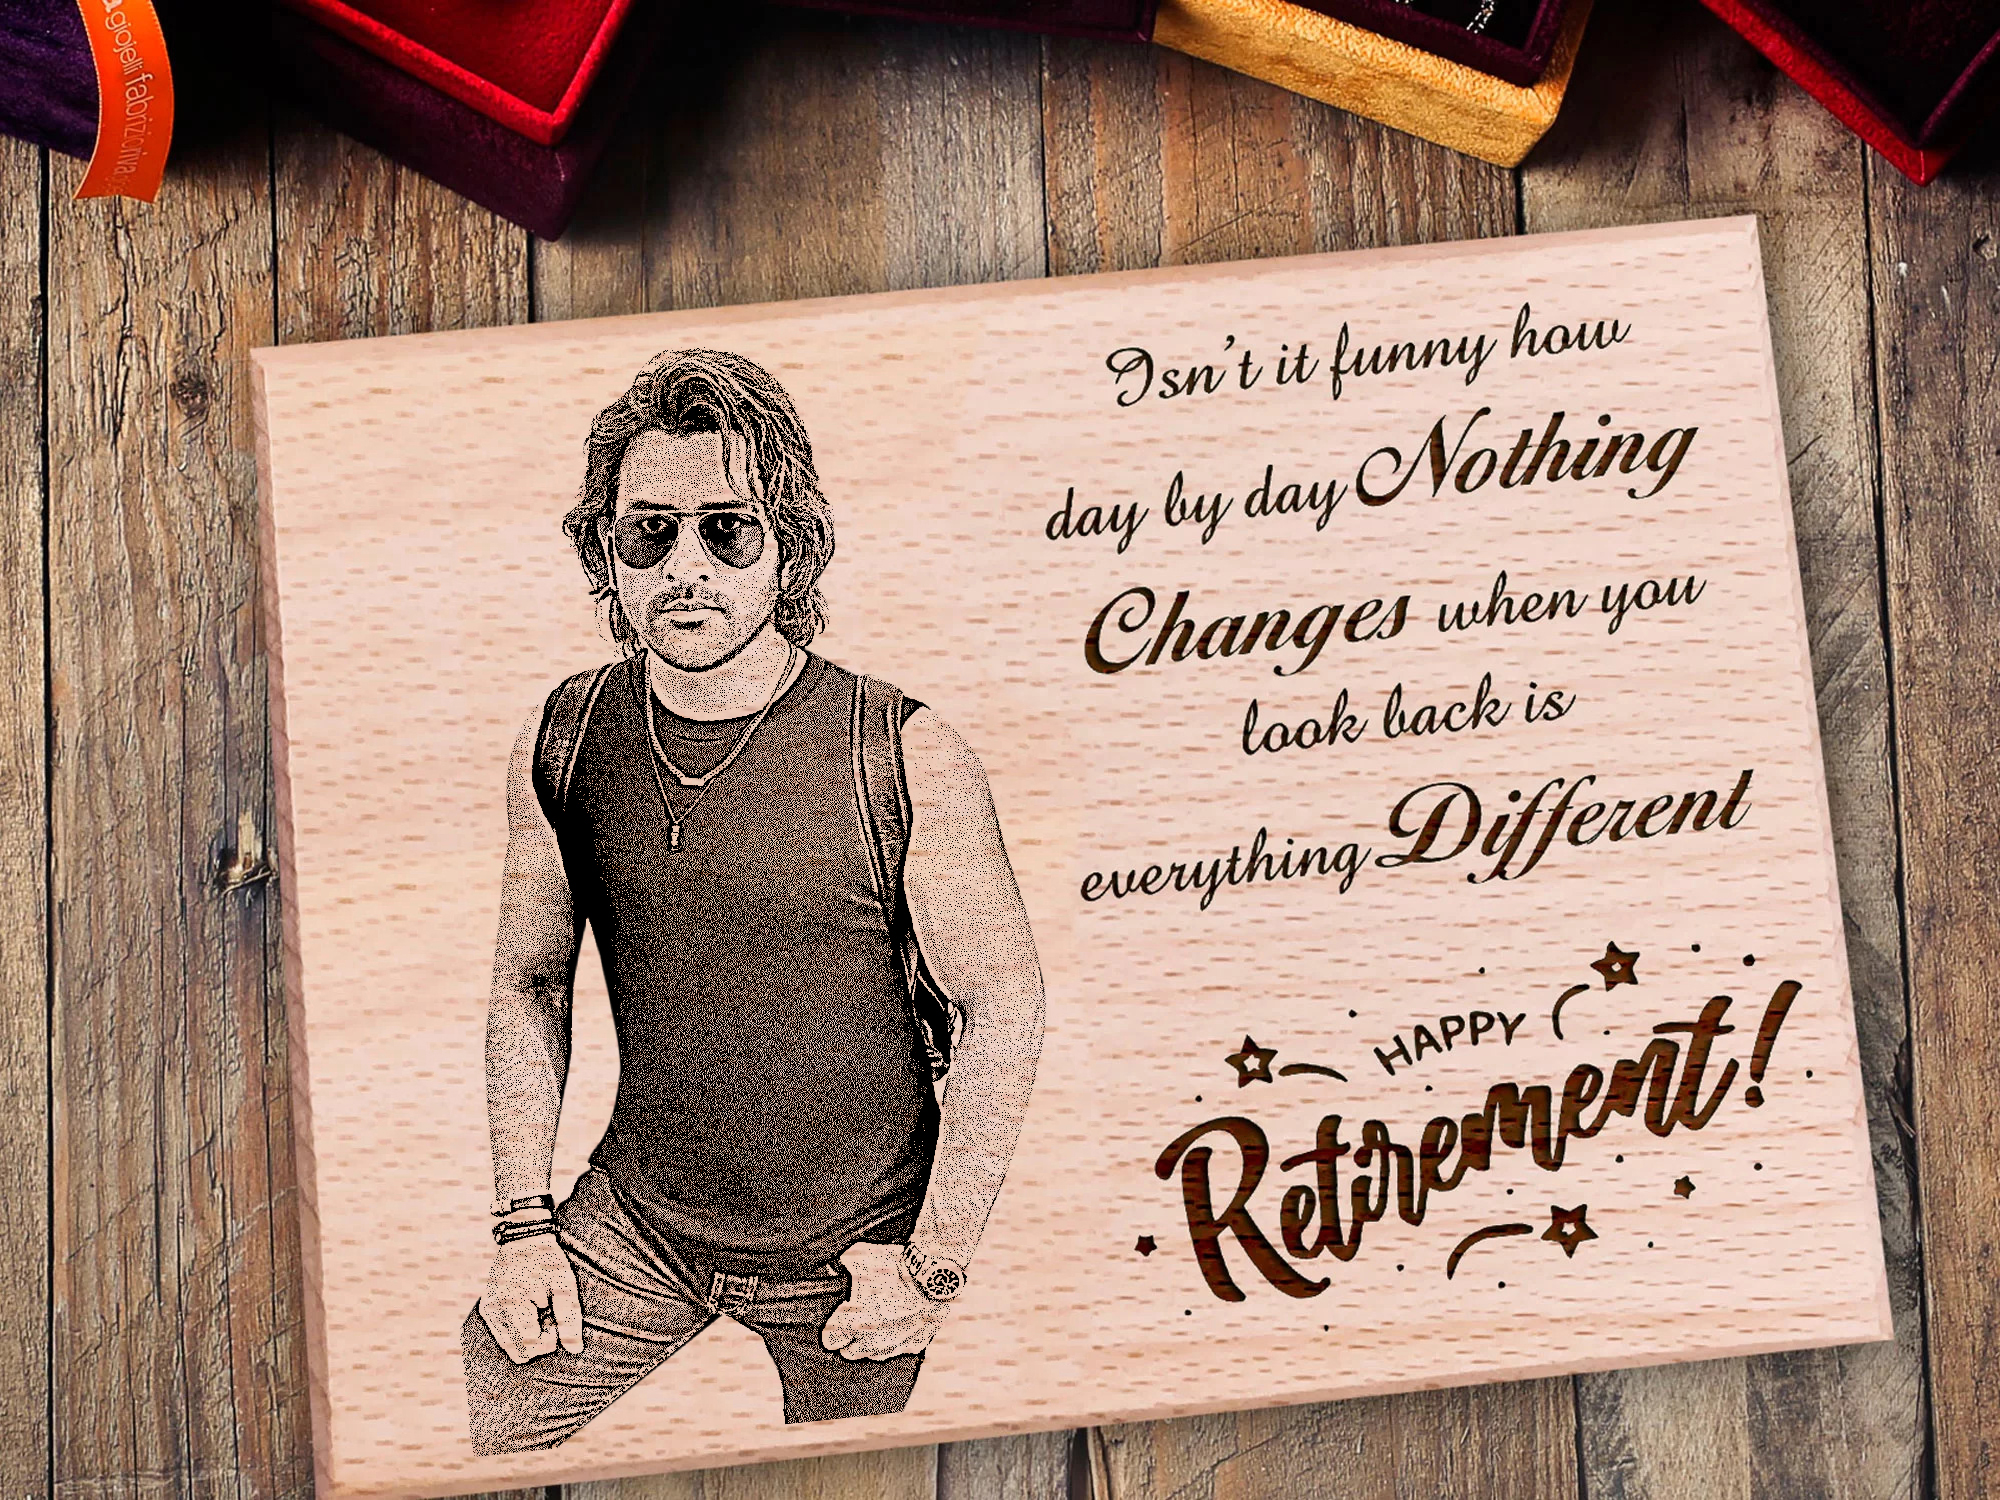 agiojelli fabrizioriva
Isn't it funny how
day by day Nothing
Changes when you
look back is
everything Different
HAPPY
Retirement!